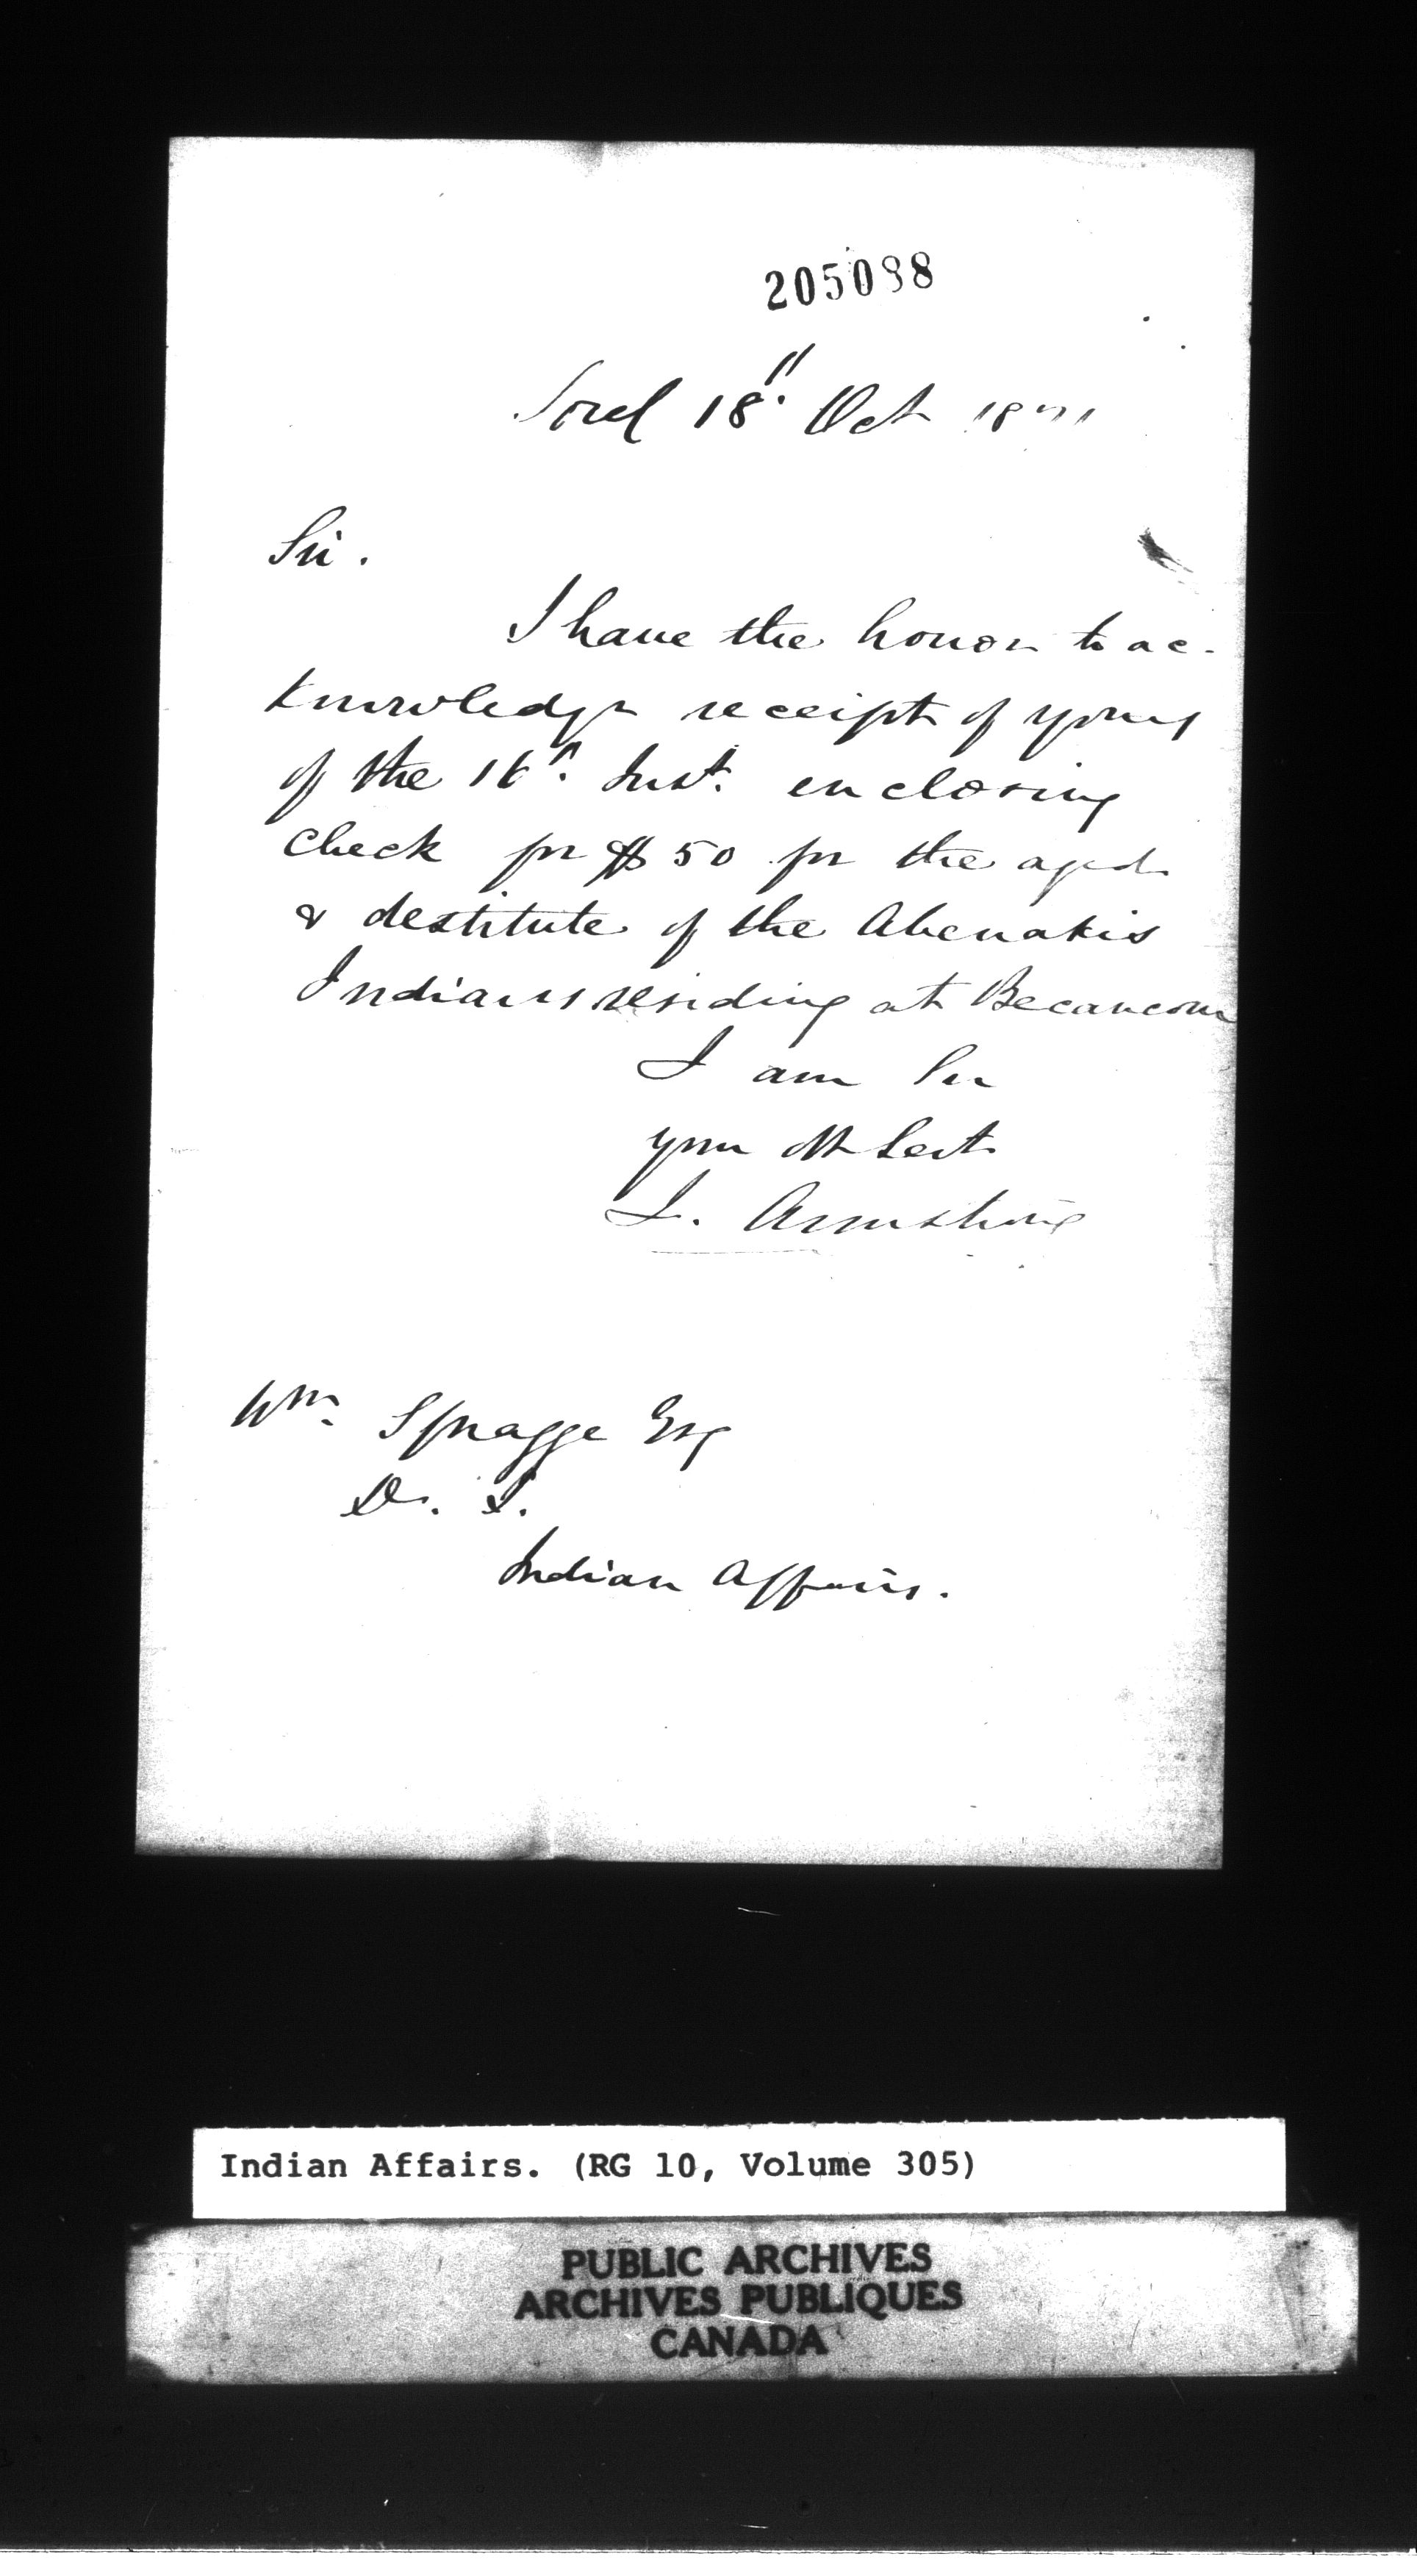 205088
Sorel 18" Oct 1871
Sir.
I have the honor to ac-
knowledge receipt of yours
of the 16". Inst. enclosing
check for $50 for the aged
& destitute of the Abenakis
Indians residing at Becancour
I am Sir
your Ob Servt
L. Armstrong
Wm. Spragge Esq
D. S.
Indian Affairs.
Indian Affairs. (RG 10, Volume 305)
PUBLIC ARCHIVES
ARCHIVES PUBLIQUES
CANADA